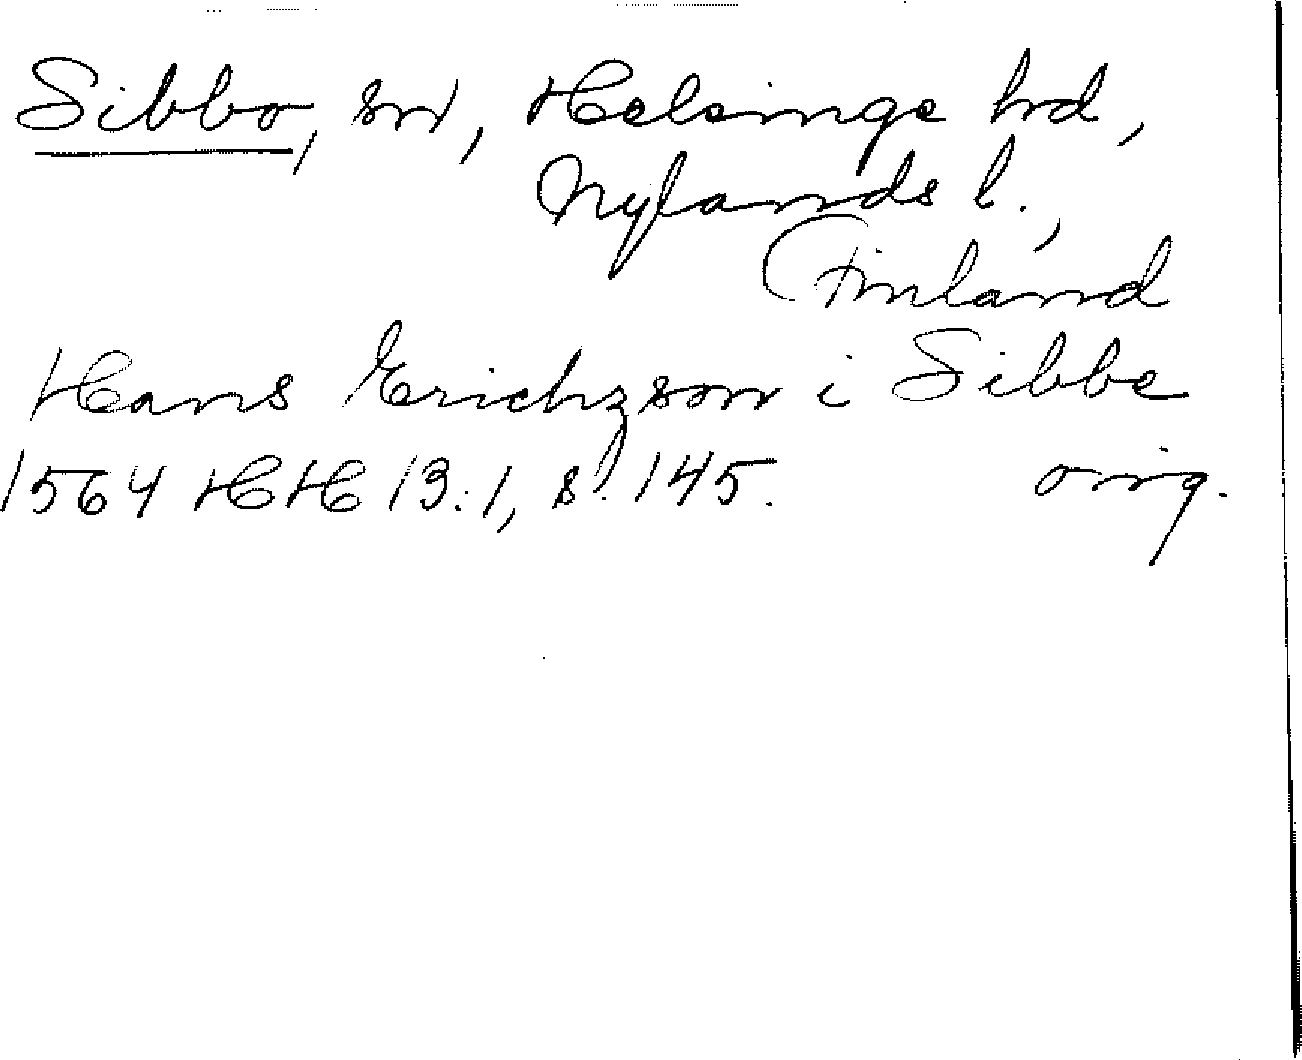 Sibbo, sn, Helsinge hd,
Nylands l.,
Finland
Hans Erichzson i Sibbe
1564 HH 13:1, s. 145. orig.